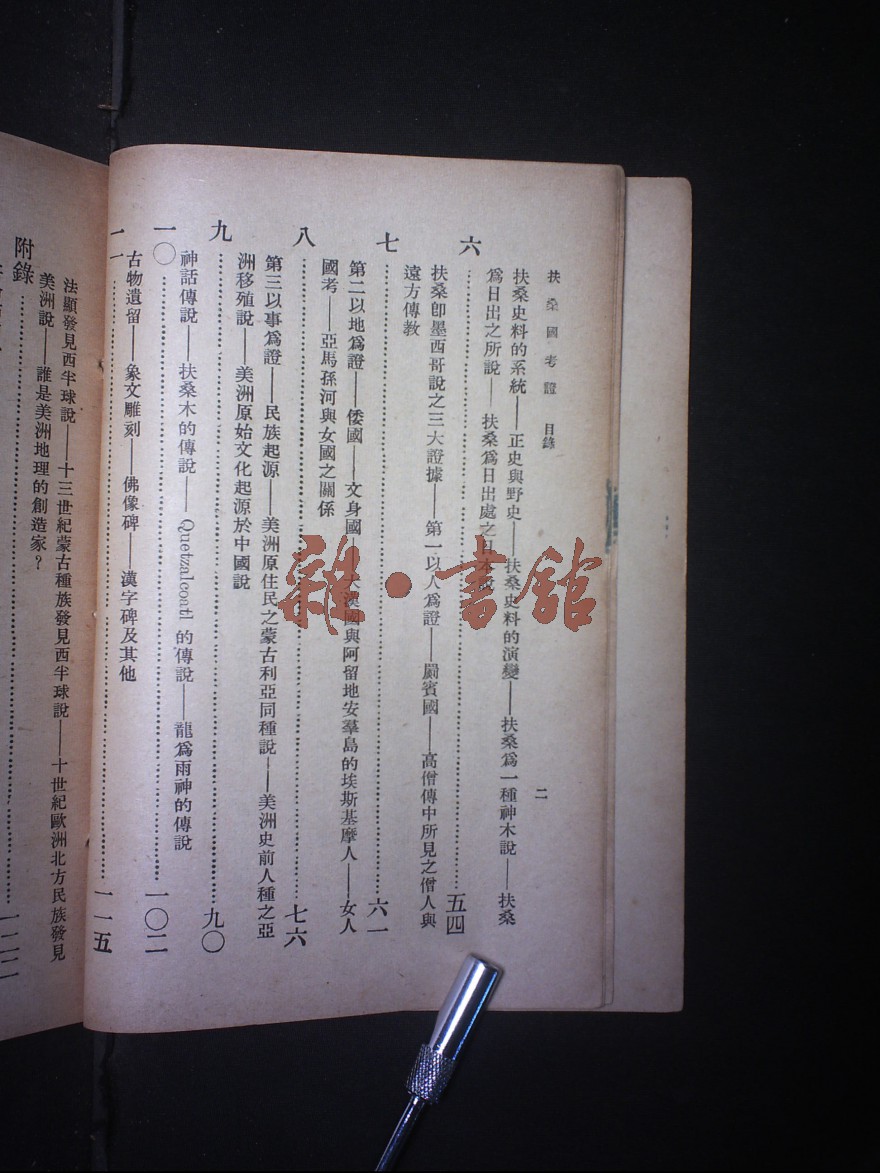 扶桑國考證 目錄
二
六……五四
扶桑史料的系統——正史與野史——扶桑史料的演變——扶桑爲一種神木說——扶桑
爲日出之所說——扶桑爲日出處之日本說
七……六一
扶桑卽墨西哥說之三大證據——第一以人爲證——罽賓國——高僧傳中所見之僧人與
遠方傳教
八……七六
第二以地爲證——倭國——文身國——大漢國與阿留地安羣島的埃斯基摩人——女人
國考——亞馬孫河與女國之關係
九……九〇
第三以事爲證——民族起源——美洲原住民之蒙古利亞同種說——美洲史前人種之亞
洲移殖說——美洲原始文化起源於中國說
一〇……一〇二
神話傳說——扶桑木的傳說——Quetzalcoatl 的傳說——龍爲雨神的傳說
一一……一一五
古物遺留——象文雕刻——佛像碑——漢字碑及其他
附錄……一二二
法顯發見西半球說——十三世紀蒙古種族發見西半球說——十世紀歐洲北方民族發見
美洲說——誰是美洲地理的創造家？
雜·書館